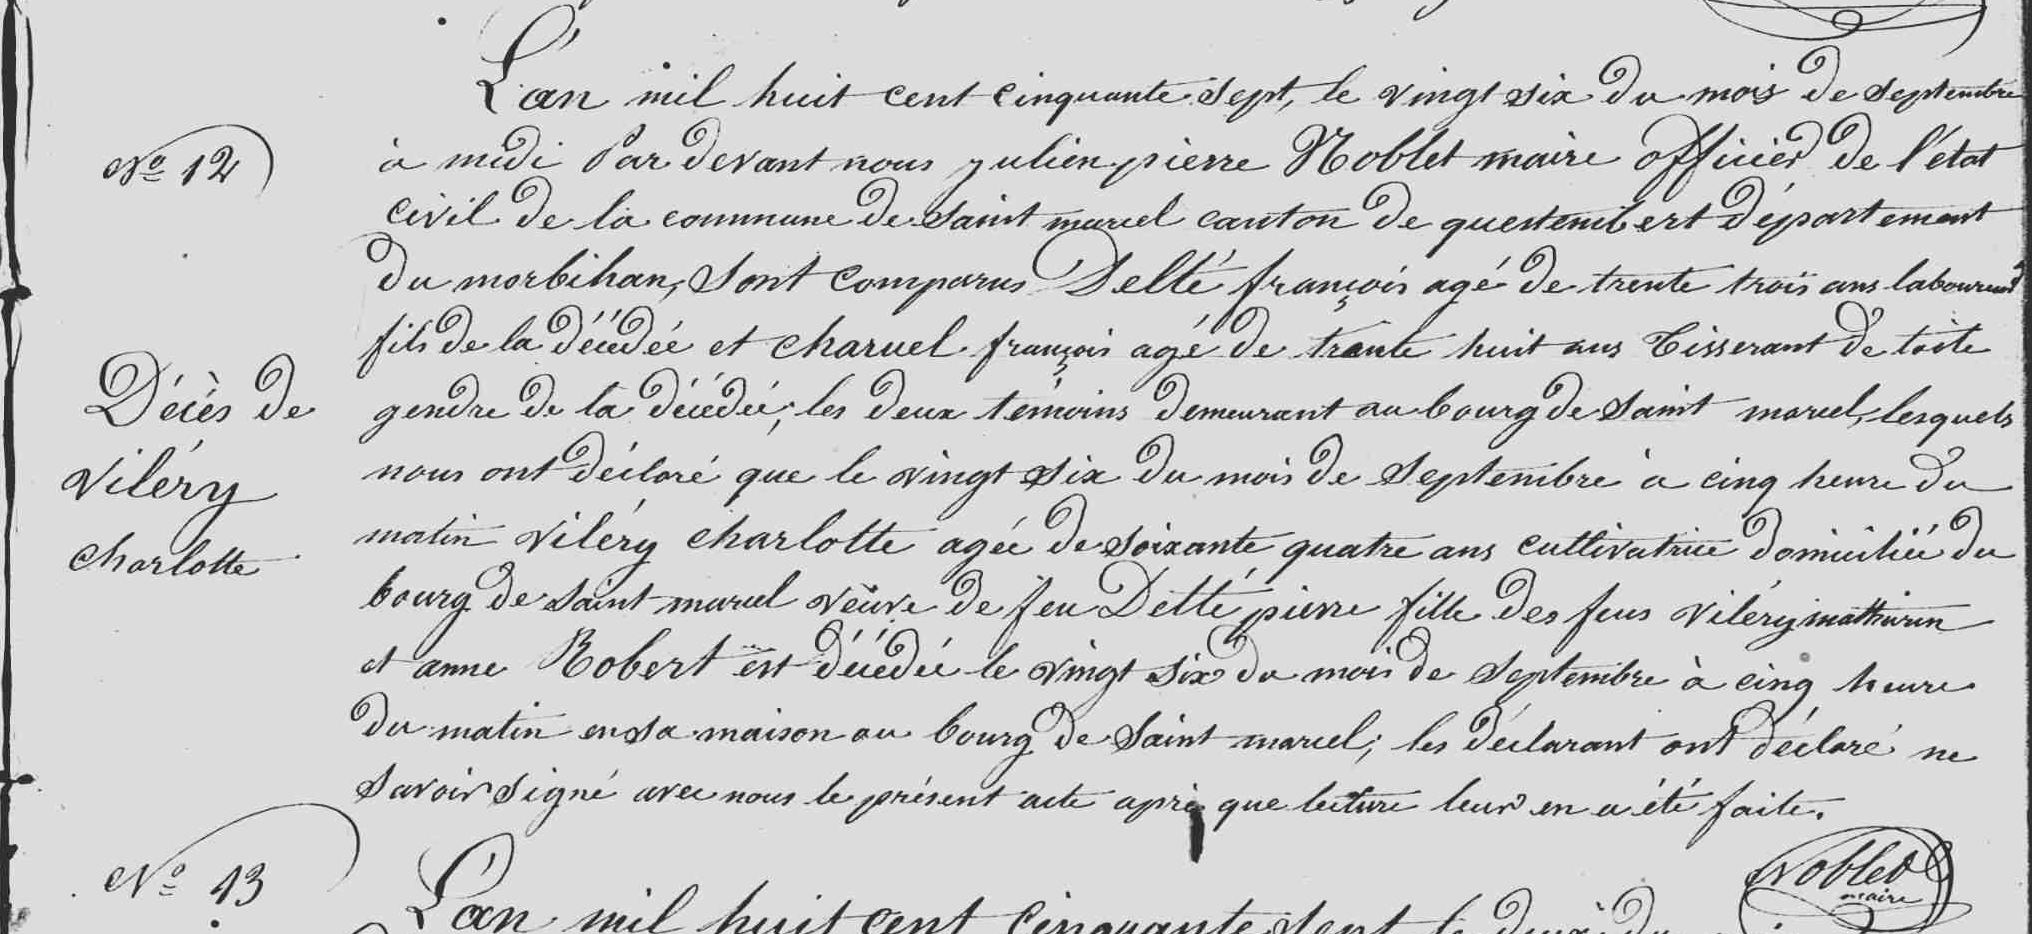 L'an mil huit cent cinquante sept, le vingt six du mois de septembre
Nº 12
à midi Par devant nous julien pierre Noblet maire officier de l'état
civil de la commune de saint marcel canton de questembert département
du morbihan, sont comparus Delté françois agé de trente trois ans laboureur
fils de la décédée et charuel françois agé de trente huit ans tisserant de toile
Décès de
gendre de la décédée; les deux témoins demeurant au bourg de saint marcel, lesquels
viléry
nous ont déclaré que le vingt six du mois de septembre à cinq heure du
charlotte
matin viléry charlotte agée de soixante quatre ans cultivatrice domiciliée du
bourg de saint marcel veuve de feu Delté pierre fille des feus viléry mathurin
et anne Robert est décédée le vingt six du mois de septembre à cinq heure
du matin en sa maison au bourg de saint marcel; les déclarant ont déclaré ne
savoir signé avec nous le présent acte après que lecture leur en a été faite.
Noblet
maire
Nº 13
L'an mil huit cent cinquante sept le deux du